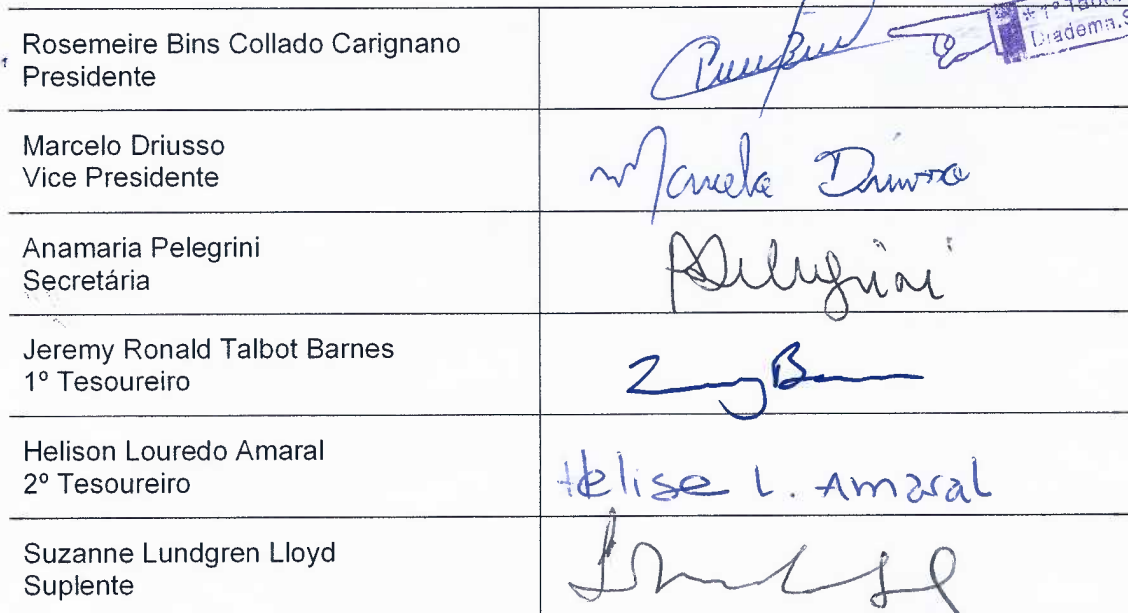 * 1º Tabel
Diadema.S
Rosemeire Bins Collado Carignano
Presidente
Marcelo Driusso
Vice Presidente
Marcelo Driusso
Anamaria Pelegrini
Secretária
APelegrini
Jeremy Ronald Talbot Barnes
1º Tesoureiro
Helison Louredo Amaral
2º Tesoureiro
Helise L. Amaral
Suzanne Lundgren Lloyd
Suplente